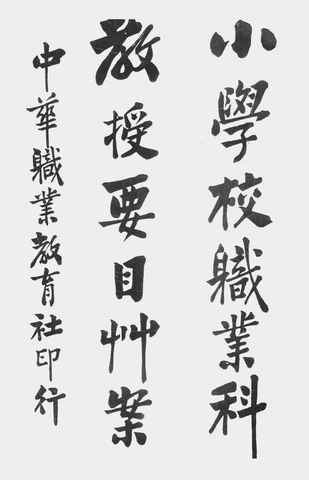 小學校職業科
教授要目艸案
中華職業教育社印行